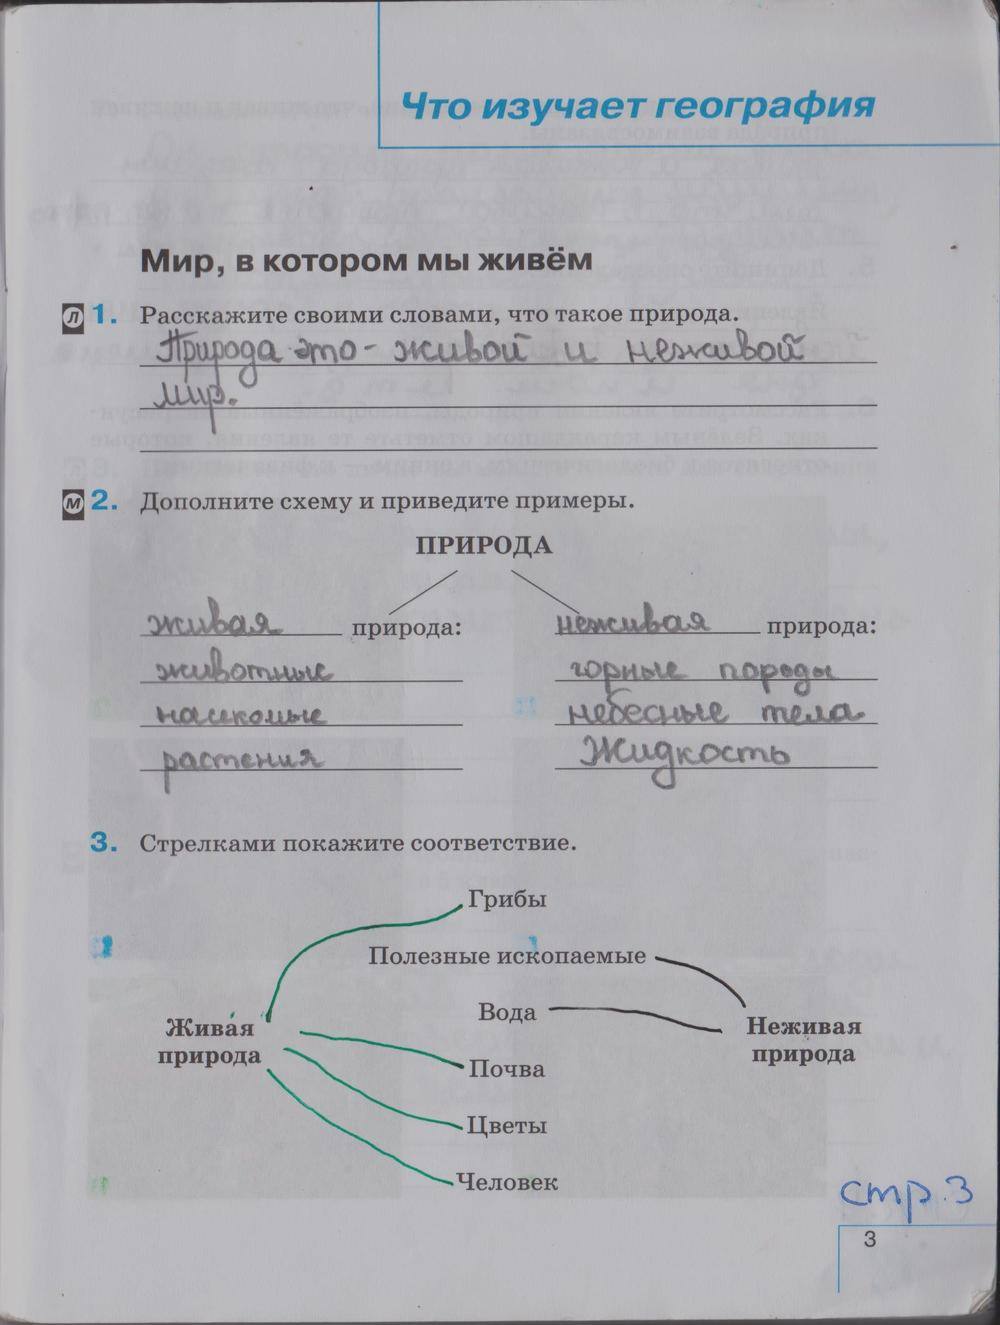 Что изучает география
Мир, в котором мы живём
Л 1. Расскажите своими словами, что такое природа.
Природа это - живой и неживой
мир.
М 2. Дополните схему и приведите примеры.
ПРИРОДА
живая природа: неживая природа:
животные горные породы
насекомые небесные тела
растения Жидкость
3. Стрелками покажите соответствие.
Грибы
Полезные ископаемые
Вода
Живая Неживая
природа природа
Почва
Цветы
Человек
стр. 3
3